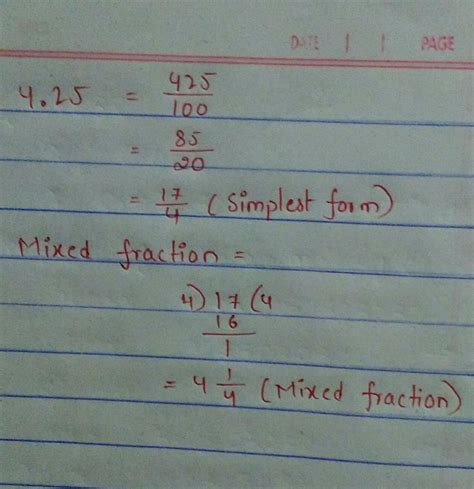 DATE PAGE
4.25 = 425/100
= 85/20
= 17/4 (Simplest form)
Mixed fraction =
4) 17 (4
16
1
= 4 1/4 (Mixed fraction)